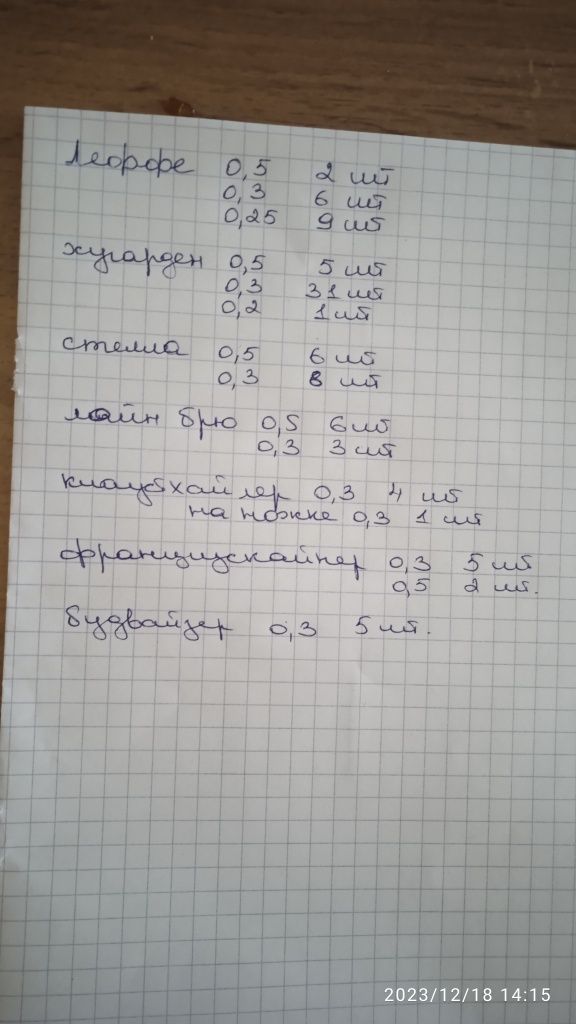 Леффе 0,5 2 шт
0,3 6 шт
0,25 9 шт
хугарден 0,5 5 шт
0,3 31 шт
0,2 1 шт
стелла 0,5 6 шт
0,3 8 шт
лайн брю 0,5 6 шт
0,3 3 шт
клаустхайлер 0,3 4 шт
на ножке 0,3 1 шт
францискайнер 0,3 5 шт
0,5 2 шт.
будвайзер 0,3 5 шт.
2023/12/18 14:15